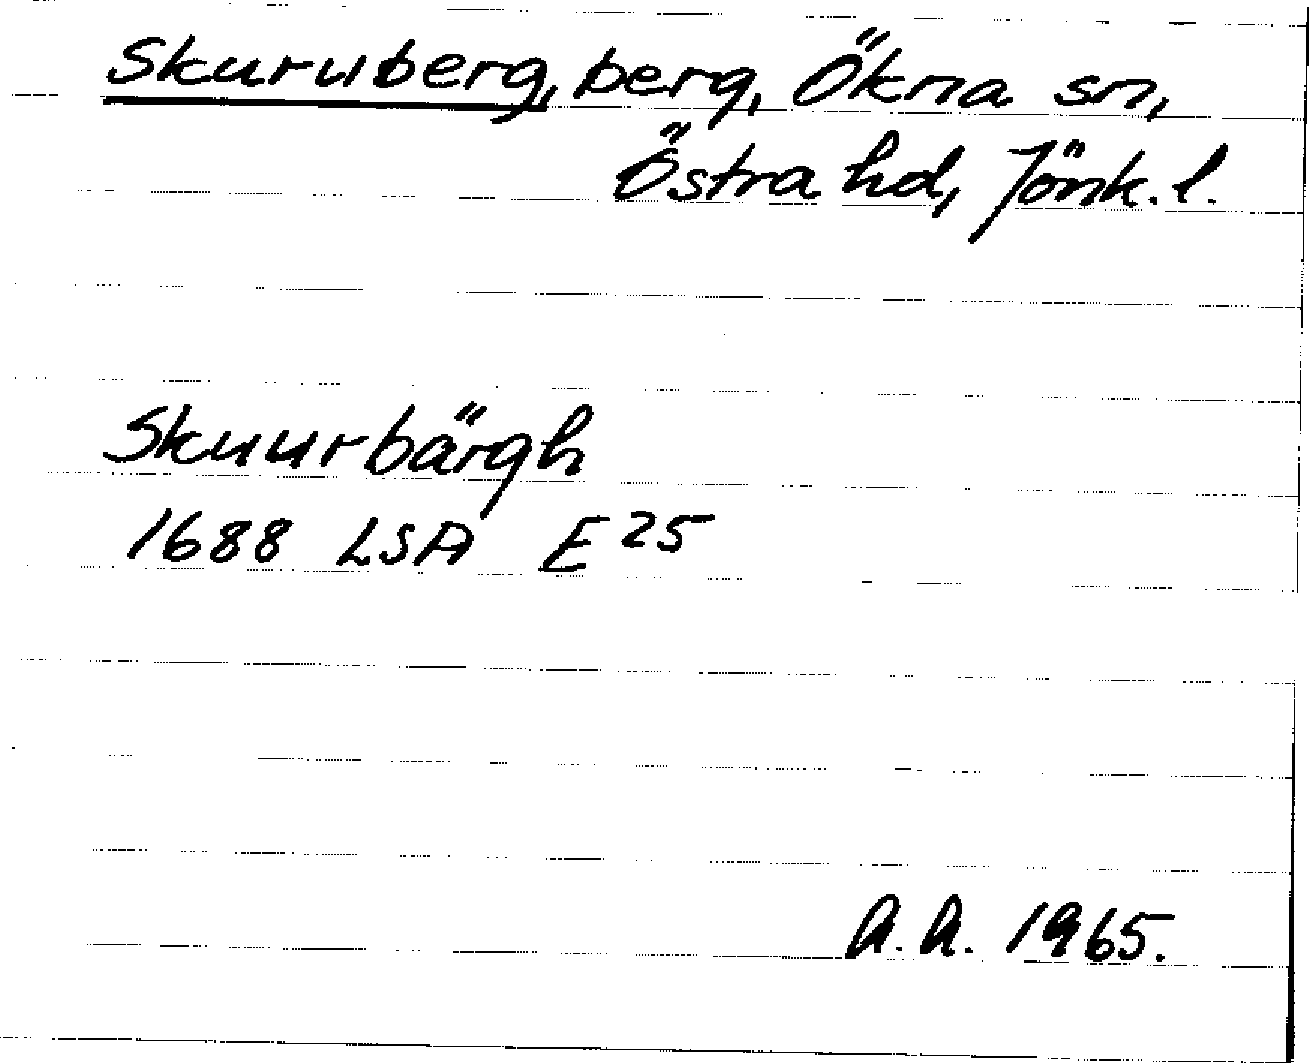 Skuruberg, berg, Ökna sn,
Östra hd, Jönk. l.
Skuurbärgh
1688 LSA E 25
A.A. 1965.